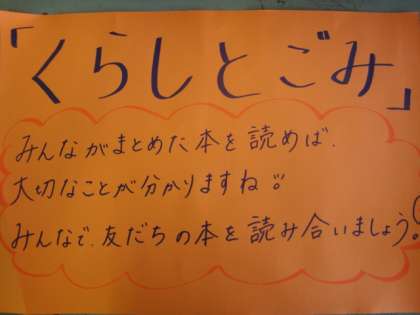 「くらしとごみ」
みんながまとめた本を読めば、
大切なことが分かりますね。
みんなで、友だちの本を読み合いましょう!